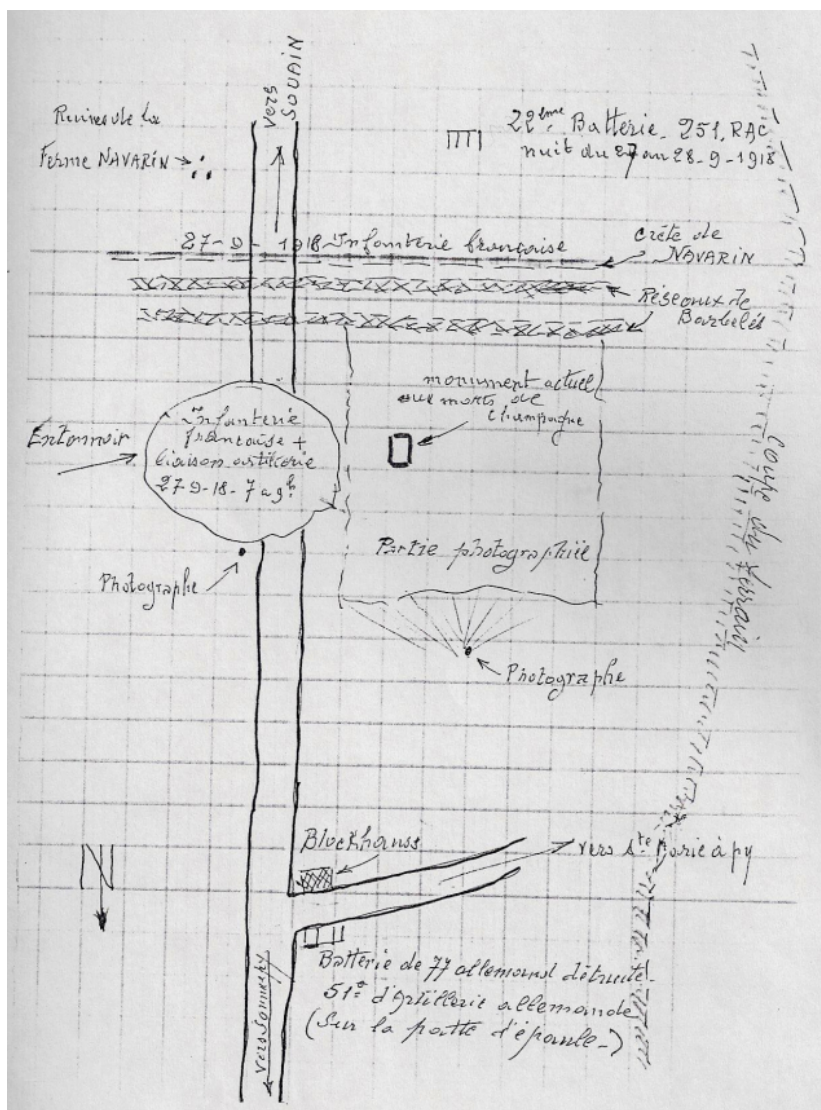 vers
SOUAIN
Ruines de la
Ferme NAVARIN
22ème Batterie. 251. RAC
nuit du 27 au 28-9-1918
27-9-1918 Infanterie française
crête de
NAVARIN
Réseaux de
Barbelés
monument actuel
aux morts de
Champagne
Entonnoir
Infanterie
française +
liaison artillerie
27-9-18-7 a 9h
coupe du terrain
Partie photographiée
Photographe
Photographe
Blockhauss
vers Ste Marie à py
N
vers Sommepy
Batterie de 77 allemand détruite-
51e d'Artillerie allemande
(Sur la patte d'épaule-)